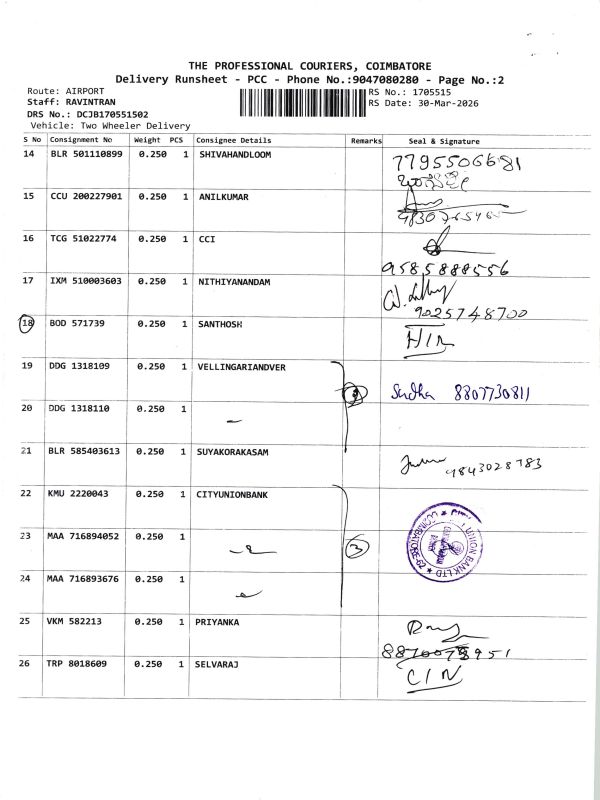 THE PROFESSIONAL COURIERS, COIMBATORE
Delivery Runsheet - PCC - Phone No.:9047080280 - Page No.:2
Route: AIRPORT
RS No.: 1705515
Staff: RAVINTRAN
RS Date: 30-Mar-2026
DRS No.: DCJB170551502
Vehicle: Two Wheeler Delivery
S No Consignment No Weight PCS Consignee Details Remarks Seal & Signature
14 BLR 501110899 0.250 1 SHIVAHANDLOOM 7795506681
15 CCU 200227901 0.250 1 ANILKUMAR
16 TCG 51022774 0.250 1 CCI
9585888556
17 IXM 510003603 0.250 1 NITHIYANANDAM
9025748700
18 BOD 571739 0.250 1 SANTHOSH
19 DDG 1318109 0.250 1 VELLINGARIANDVER
Sudha 8807730811
20 DDG 1318110 0.250 1
21 BLR 585403613 0.250 1 SUYAKORAKASAM
9843028783
22 KMU 2220043 0.250 1 CITYUNIONBANK
23 MAA 716894052 0.250 1 3 UNION BANK LTD
24 MAA 716893676 0.250 1
25 VKM 582213 0.250 1 PRIYANKA
26 TRP 8018609 0.250 1 SELVARAJ